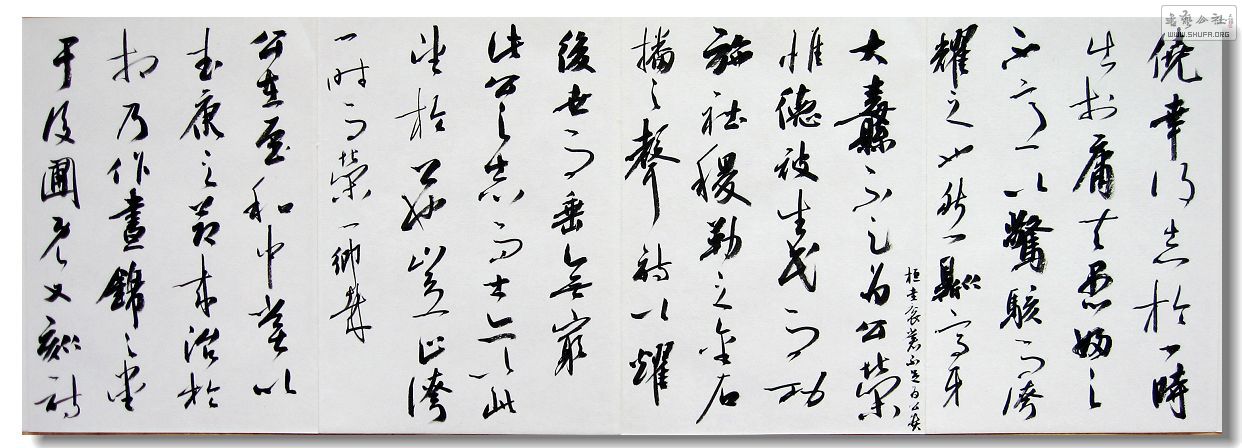 書藝公社
WWW.SHUFA.ORG
僥幸得志於一時
出於庸夫愚婦之
不意以驚駭而誇
耀之也然則高牙
大纛不足為公榮
桓圭袞裳不足為公貴
惟德被生民而功
施社稷勒之金石
播之聲詩以耀
後世而垂無窮
此公之志而士亦以此
望於公也豈止誇
一時而榮一鄉哉
公在至和中嘗以
武康之節來治於
相乃作晝錦之堂
于後圃既又刻詩